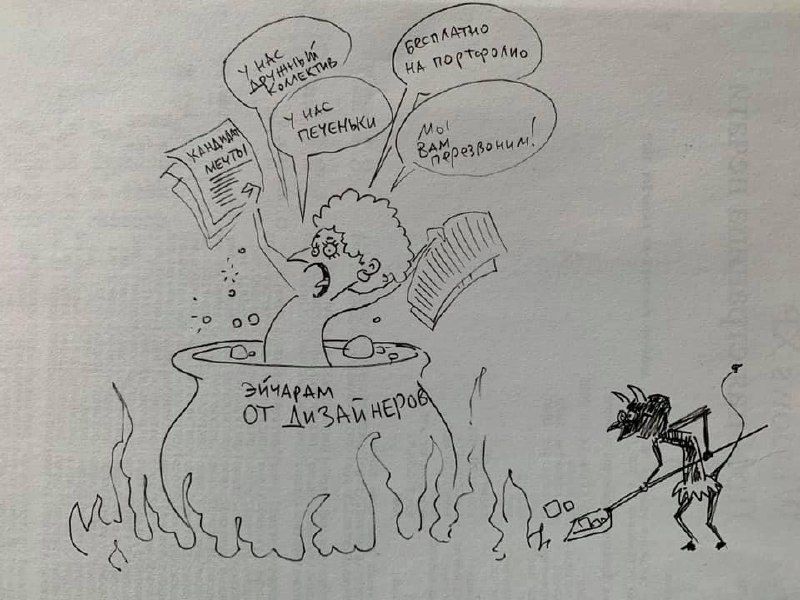 У НАС
ДРУЖНЫЙ
КОЛЛЕКТИВ
БЕСПЛАТНО
НА ПОРТФОЛИО
У НАС
ПЕЧЕНЬКИ
МЫ
ВАМ
перезвоним!
КАНДИДАТ
МЕЧТЫ
ЭЙЧАРАМ
ОТ ДИЗАЙНЕРОВ